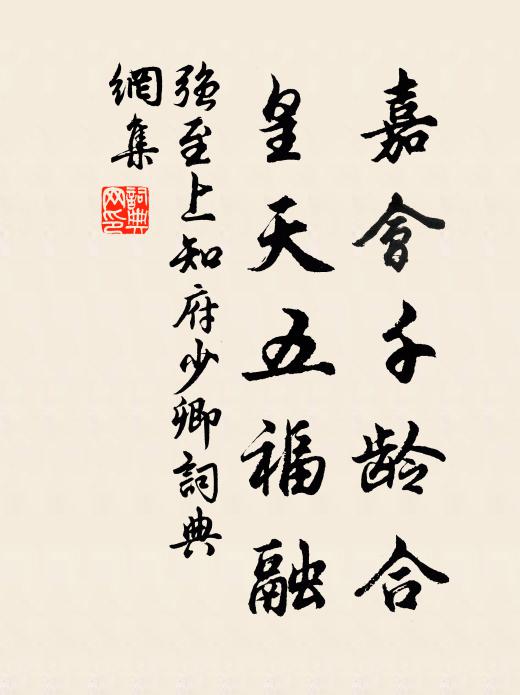 嘉會千龄合
皇天五福融
强至上知府少卿詞典
網集
詞典
网印